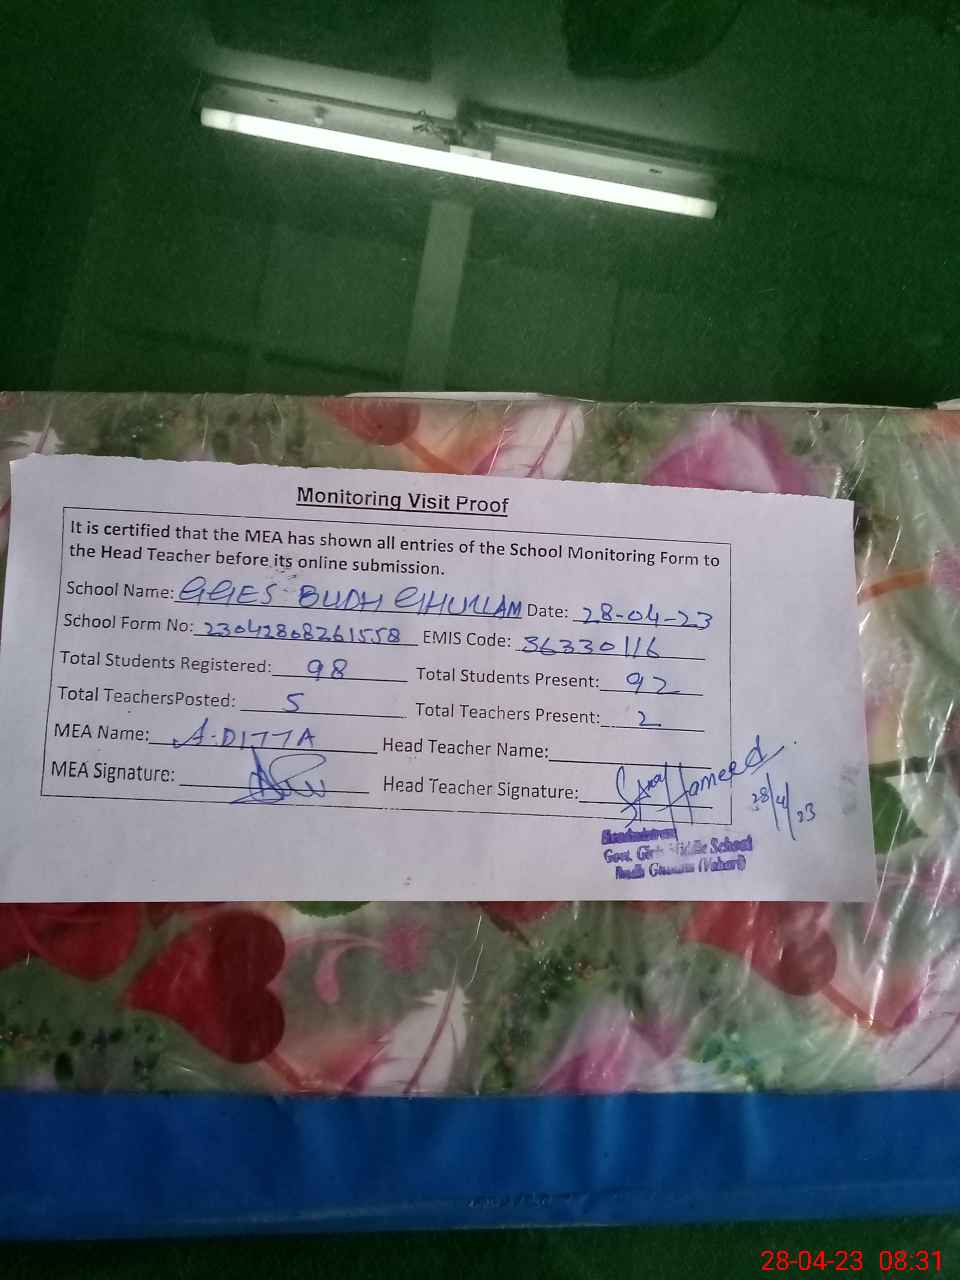 Monitoring Visit Proof
It is certified that the MEA has shown all entries of the School Monitoring Form to
the Head Teacher before its online submission.
School Name: GGES BUDH GHULLAM Date: 28-04-23
School Form No: 23042808261558 EMIS Code: 36330116
Total Students Registered: 98 Total Students Present: 92
Total TeachersPosted: 5 Total Teachers Present: 2
MEA Name: A.DITTA Head Teacher Name:
MEA Signature: Head Teacher Signature: Hameed
28/4/23
Headmistress
Govt. Girls Middle School
Budh Ghulam (Vehari)
28-04-23 08:31